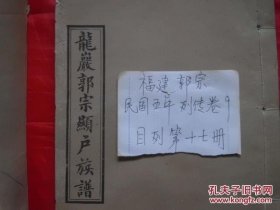 龍巖郭宗顯戶族譜
福建 郭宗
民国五年 列传卷9
目列 第十七册
孔夫子旧书网